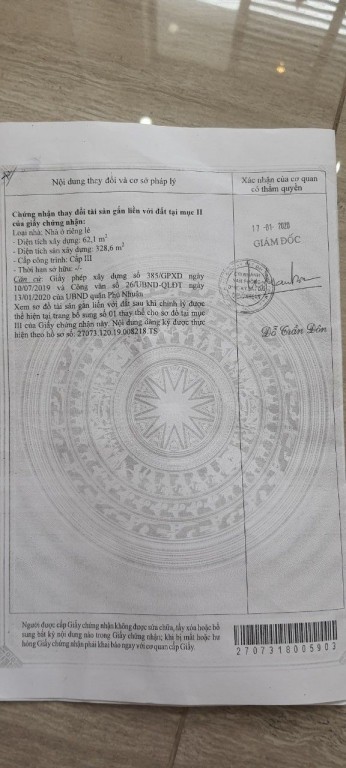 Nội dung thay đổi và cơ sở pháp lý
Xác nhận của cơ quan
có thẩm quyền
Chứng nhận thay đổi tài sản gắn liền với đất tại mục II
của giấy chứng nhận:
Loại nhà: Nhà ở riêng lẻ
- Diện tích xây dựng: 62,1 m²
- Diện tích sàn xây dựng: 328,6 m²
- Cấp công trình: Cấp III
- Thời hạn sở hữu: -/-
Căn cứ: Giấy phép xây dựng số 385/GPXD ngày
10/07/2019 và Công văn số 26/UBND-QLĐT ngày
13/01/2020 của UBND quận Phú Nhuận.
Xem sơ đồ tài sản gắn liền với đất sau khi chỉnh lý được
thể hiện tại trang bổ sung số 01 thay thế cho sơ đồ tại mục
III của Giấy chứng nhận này. Nội dung đăng ký được thực
hiện theo hồ sơ số: 27073.120.19.008218.TS
17 -01- 2020
GIÁM ĐỐC
Đỗ Trần Đôn
Người được cấp Giấy chứng nhận không được sửa chữa, tẩy xóa hoặc bổ
sung bất kỳ nội dung nào trong Giấy chứng nhận; khi bị mất hoặc hư
hỏng Giấy chứng nhận phải khai báo ngay với cơ quan cấp Giấy.
2707318005903